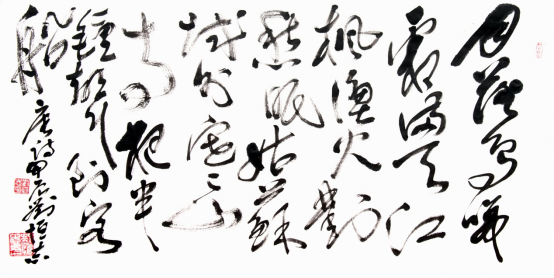 月落烏啼
霜滿天江
楓漁火對
愁眠姑蘇
城外寒山
寺夜半
鐘聲到客
船
唐詩甲辰劉